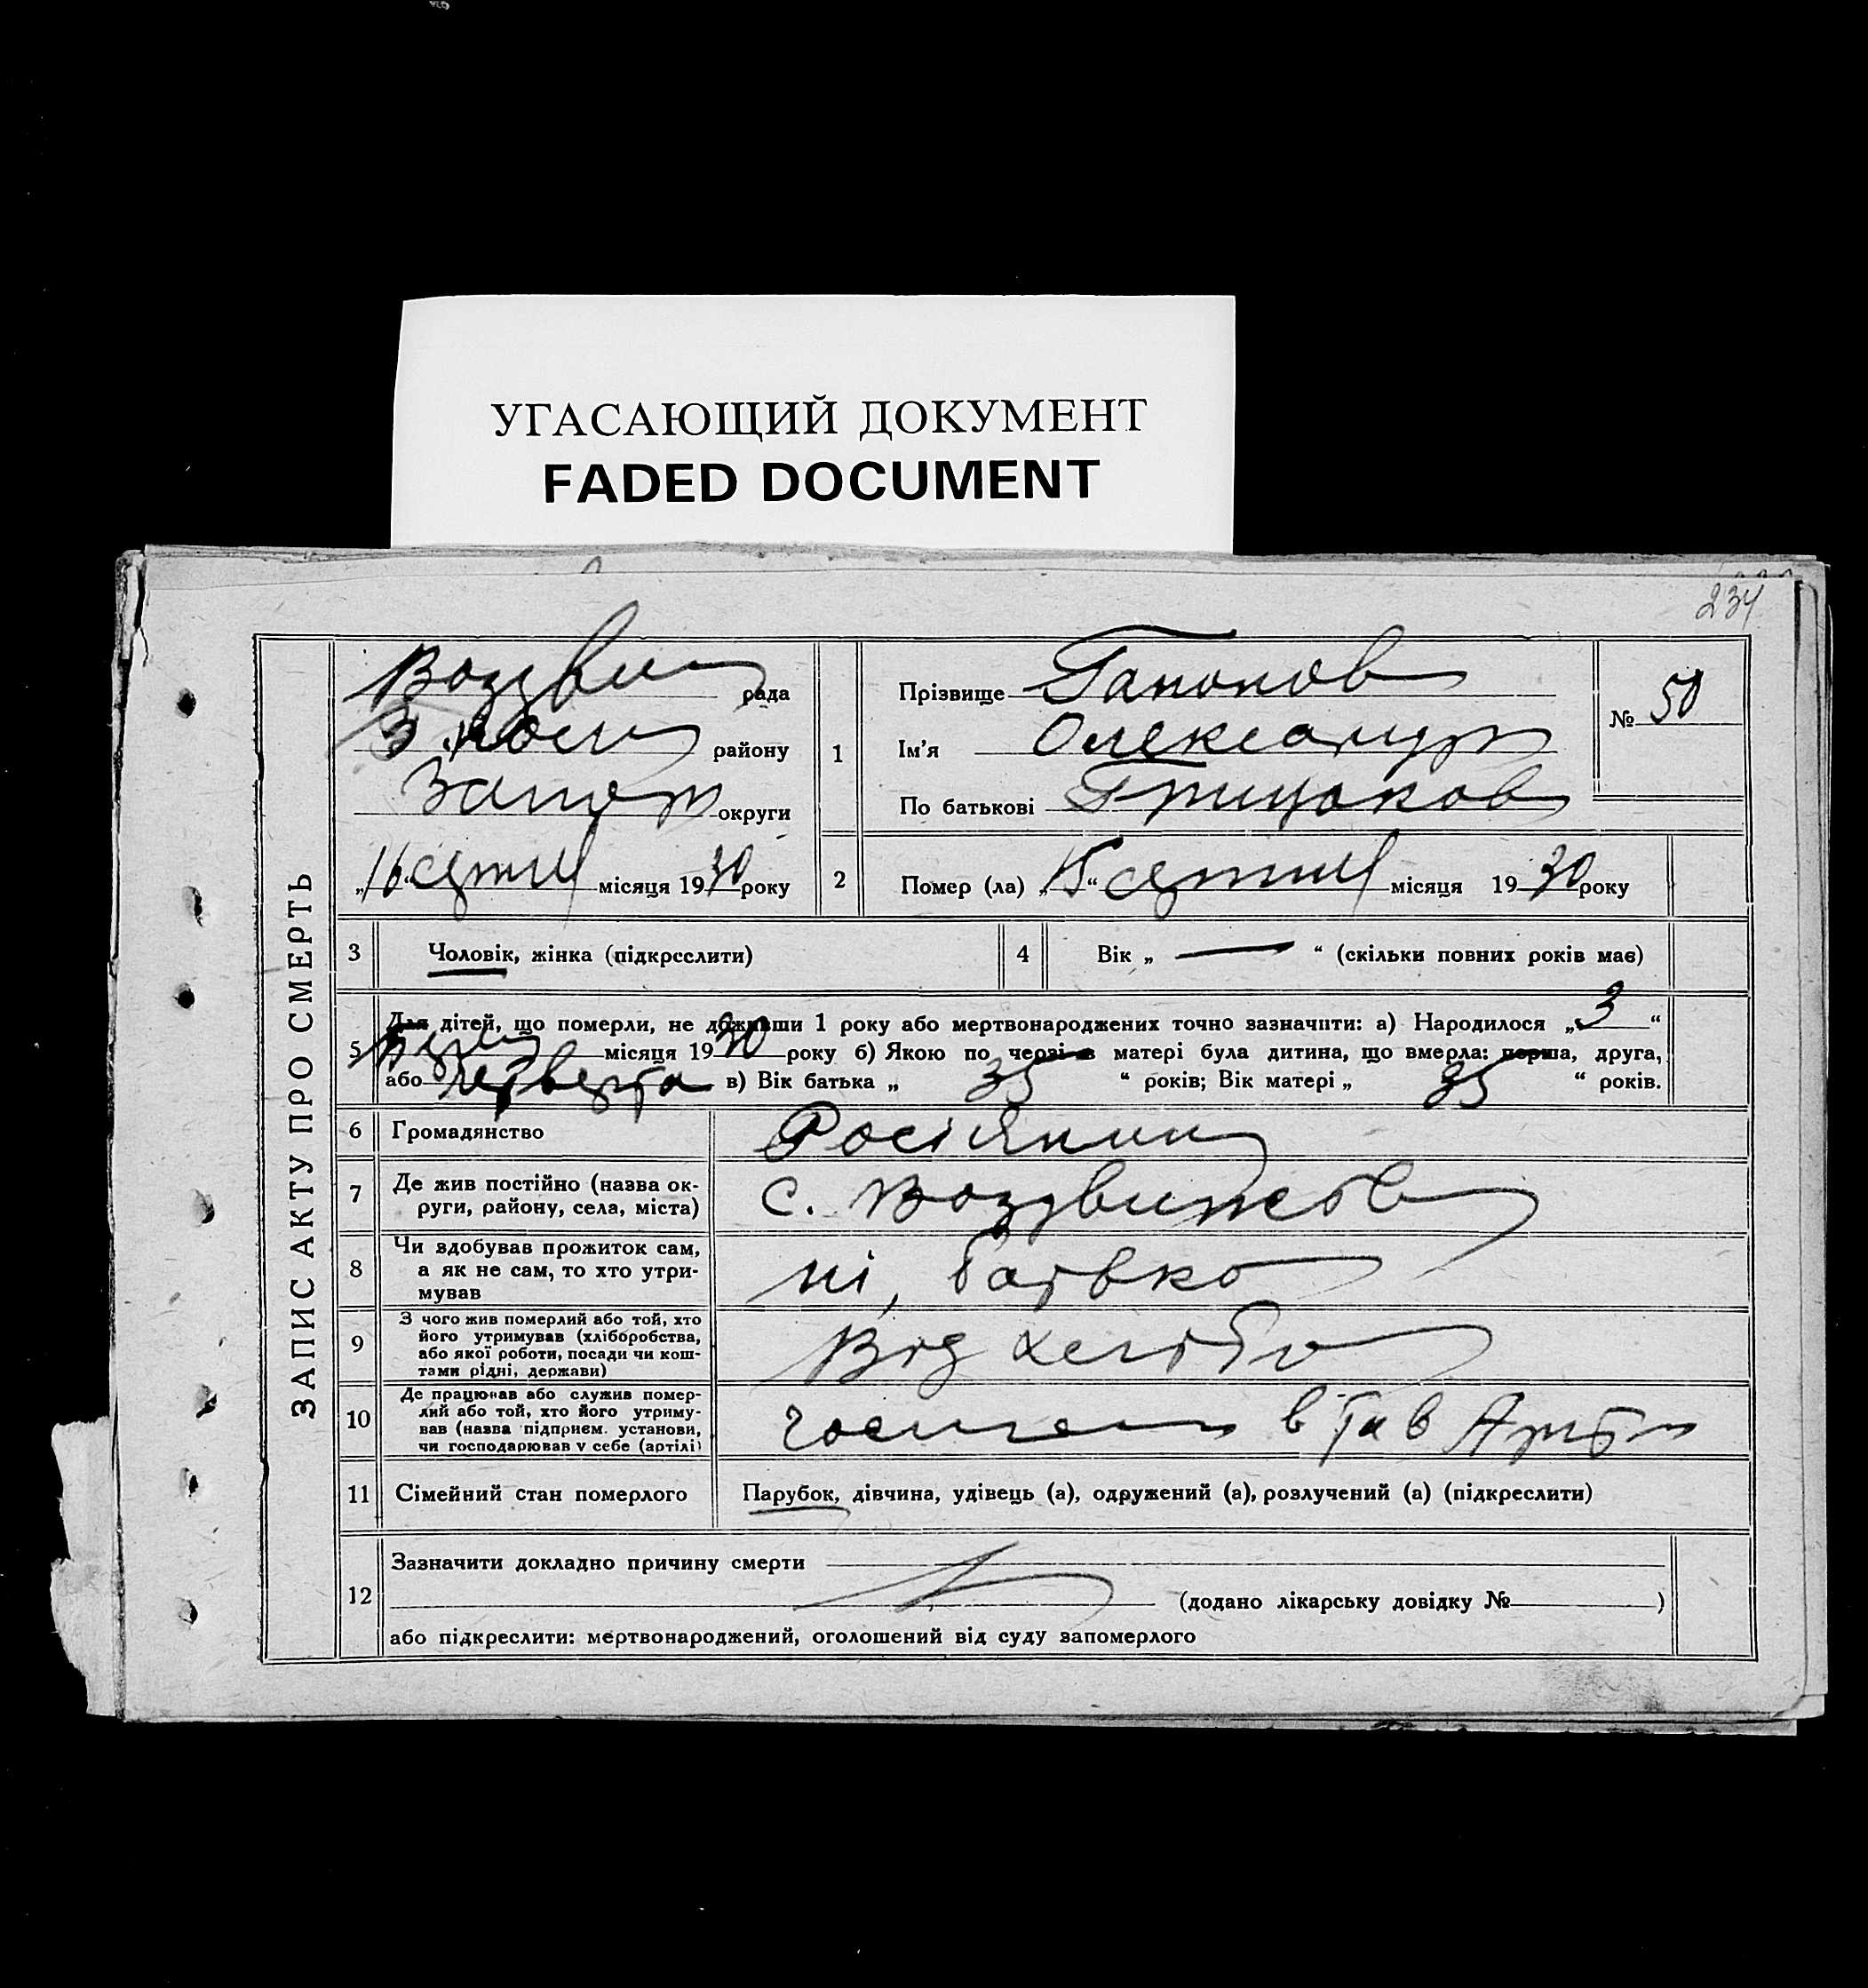 УГАСАЮЩИЙ ДОКУМЕНТ
FADED DOCUMENT
234
ЗАПИС АКТУ ПРО СМЕРТЬ
Воздви рада
району
Запор округи
„16“ місяця 1930 року
1
Прізвище Гапонов
Ім'я Олександр
По батькові
№ 50
2
Помер (ла) „15“ місяця 1930 року
3 Чоловік, жінка (підкреслити)
4 Вік „ — “ (скільки повних років має)
5 Для дітей, що померли, не доживши 1 року або мертвонароджених точно зазначити: а) Народилося „3“
місяця 1930 року б) Якою по черзі в матері була дитина, що вмерла: перша, друга,
або четверта в) Вік батька „ 35 “ років; Вік матері „ 35 “ років.
6 Громадянство Росіянин
7 Де жив постійно (назва ок-
руги, району, села, міста) с. Воздвижов
8 Чи здобував прожиток сам,
а як не сам, то хто утри-
мував ні, батько
9 З чого жив померлий або той, хто
його утримував (хліборобства,
або якої роботи, посади чи кош-
тами рідні, держави) Від хліба
10 Де працював або служив помер-
лий або той, хто його утриму-
вав (назва підприєм. установи,
чи господарював у себе (артілі)
11 Сімейний стан померлого Парубок, дівчина, удівець (а), одружений (а), розлучений (а) (підкреслити)
12 Зазначити докладно причину смерти
(додано лікарську довідку № )
або підкреслити: мертвонароджений, оголошений від суду запомерлого